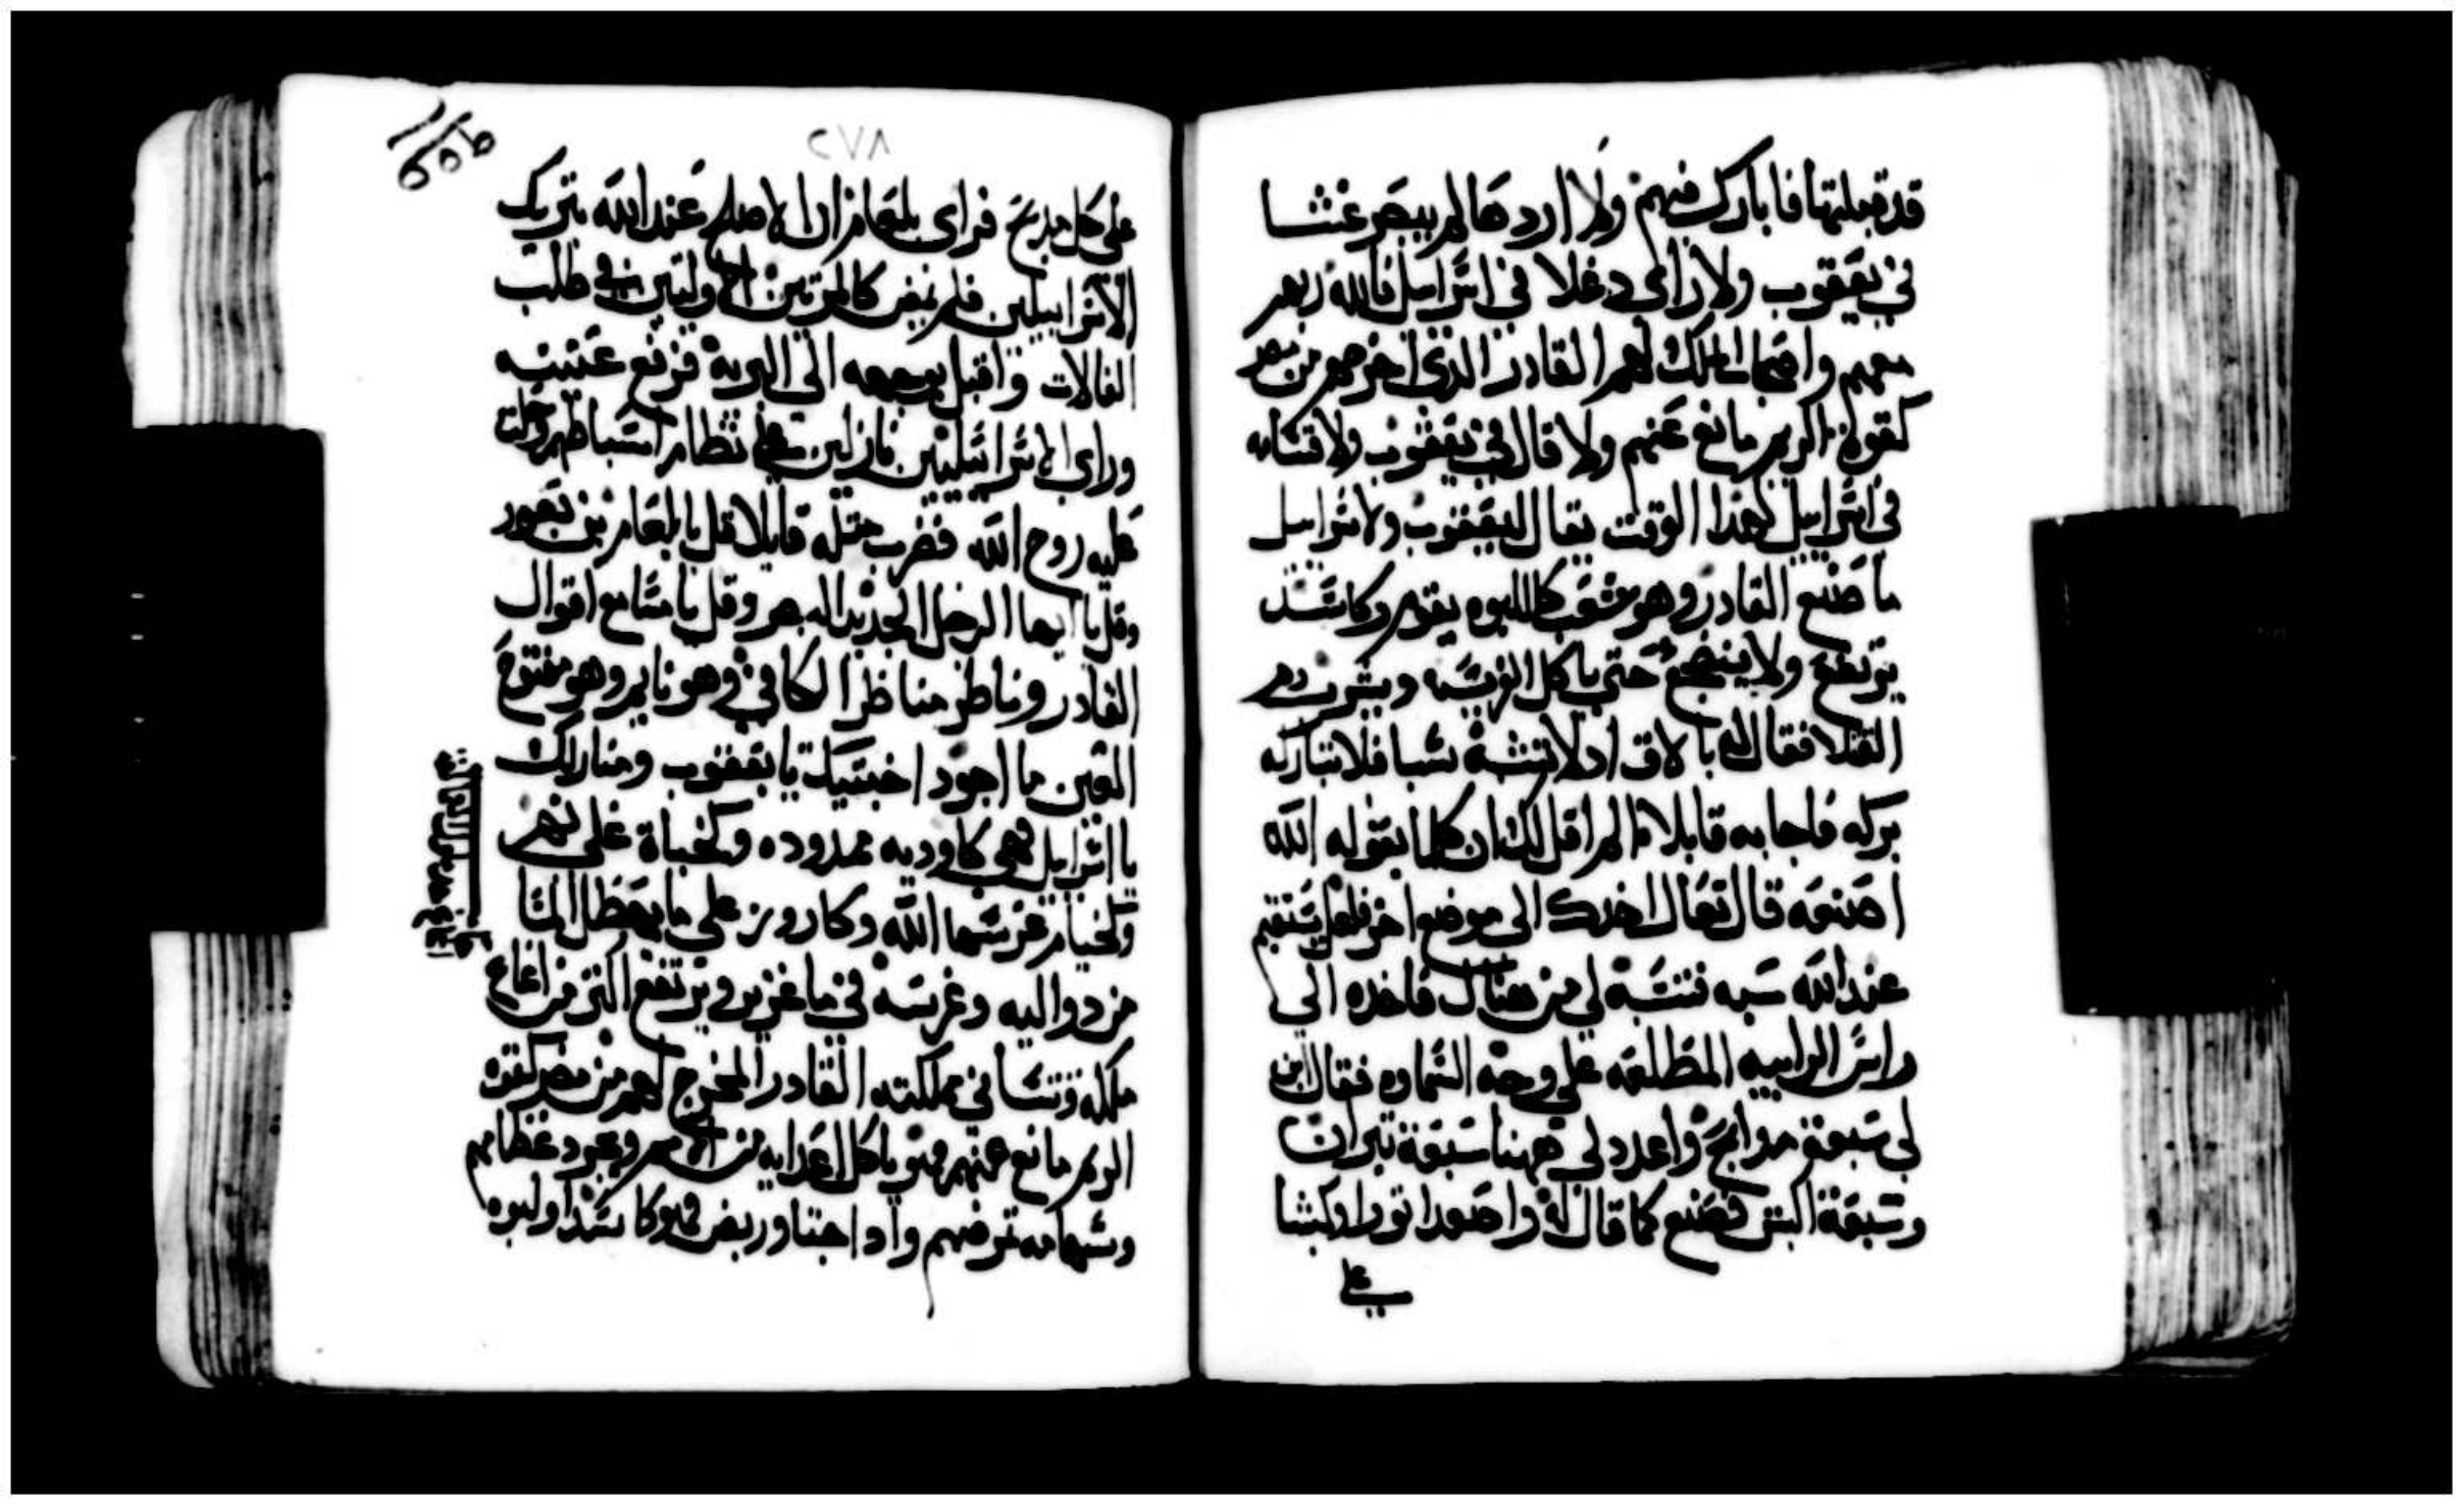 قد قبلتها فابارك فيهم ولا اردها لم يبصر غشا
في يعقوب ولا راى دغلا في اسراييل فالله ربهم
معهم واصحاب الملك لهم القادر الذي اخرجهم من مصر
كقوة الريم مانع عنهم ولا فال في يعقوب ولا قسامه
في اسراييل لهذا الوقت يقال ليعقوب ولاسراييل
ما صنع القادر وهو شعب كاللبوه يقوم وكاسد
يرتفع ولا ينضجع حتى ياكل الفريسه ويشرب دم
القتلا فقال له بالاق اد لا تسبه سبا فلا تباركه
بركه فاجابه قايلا الم اقل لك ان كلما يقوله الله
اصنعه قال تعال اخدك الى موضع اخر فلعل يستقيم
عند الله سبه فتسبه لي من هناك فاخده الى
راس الرابيه المطلعه على وجه السماوه فقال ابن
لي سبعة مدابح واعدد لي ههنا سبعة تيران
وسبعة اكبش فصنع كما قال له واصعد تورا وكبشا
على
٢٧٨
على كل مدبح فراى بلعام ان الاصلح عند الله تبريك
الاسراييلين فلم يمض كالمرتين الاولتين في طلب
الفالات واقبل بوجهه الى البريه فرفع عينيه
وراى الاسراييليين نازلين على نظام اسباطهم وحلت
عليه روح الله فضرب مثله قايلا قل يا بلعام بن بعور
وقل يا ايها الرجل الحديد البصر وقل يا سامع اقوال
القادر وناظر مناظر الكافي وهو نايم وهو مفتوح
العين ما اجود اخبيتك يا يعقوب ومنازلك
يا اسراييل فهي كاوديه ممدوده وكجناة على نهر
وكخيام غرسها الله وكارز على ما يهطل الما
من دواليه وغرسه في ما غزير ويرتفع اكتر من اغاغ
ملكه وتنشا في مملكته القادر المخرج لهم من مصر كقوة
الريم مانع عنهم فهو ياكل اعدايه من الامم ويجرد عظامهم
وسهامه ترضهم واد اجتا وربض فهو كاسد او لبوه